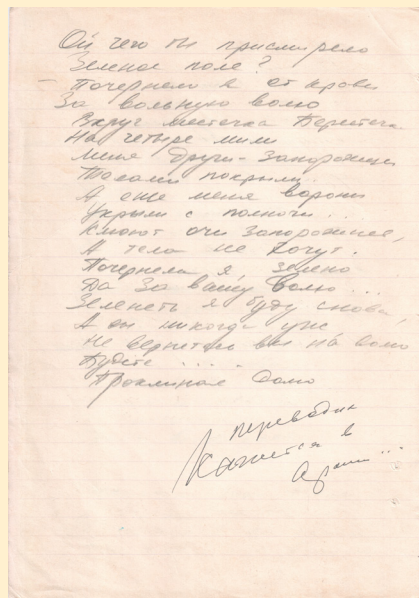 Ой чего ты присмирело
Зеленое поле?
Почернело я от крови
За вольную волю
Вкруг местечка Берестечка
На четыре мили
Меня други-запорожцы
Телами покрыли
А еще меня вороны
Укрыли с полночи...
Клюют очи запорожские,
А тела не хочут.
Почернело я, зелено
Да за вашу волю...
Зеленеть я буду снова,
А вы никогда уже
Не вернетесь вы на волю
Будете .....
Проклиная долю
переводил
Кажется в